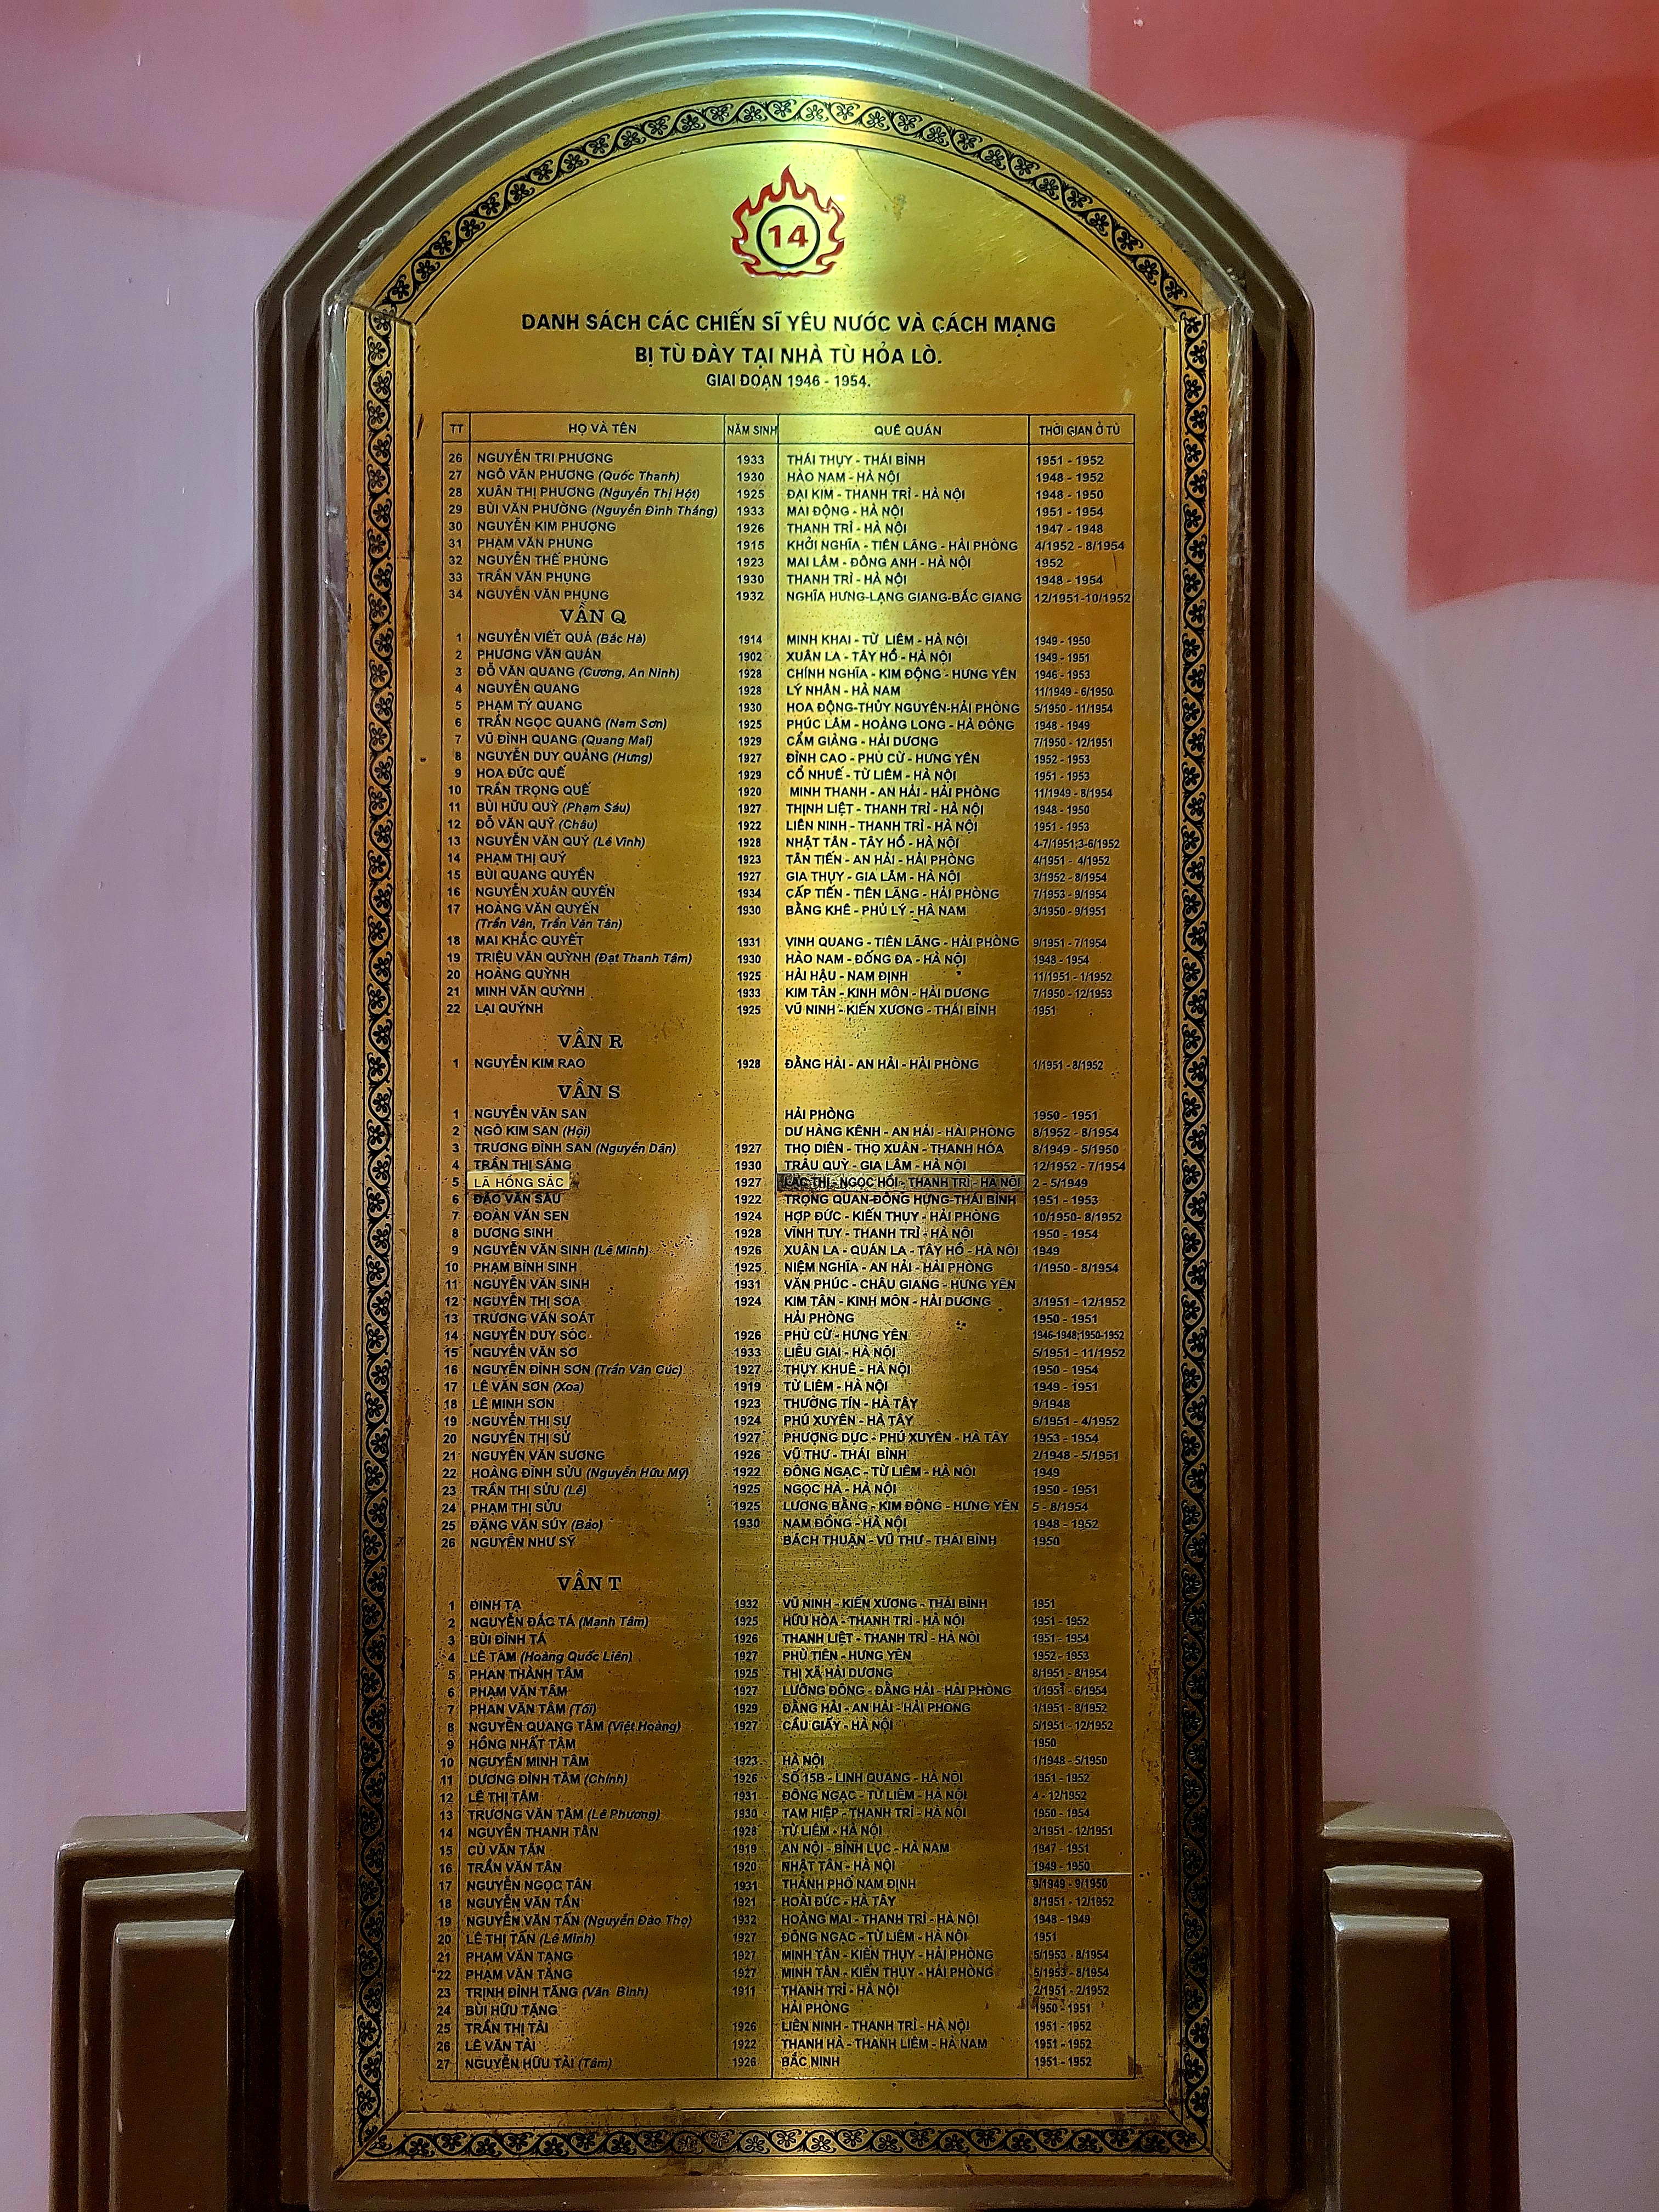 14
DANH SÁCH CÁC CHIẾN SĨ YÊU NƯỚC VÀ CÁCH MẠNG
BỊ TÙ ĐÀY TẠI NHÀ TÙ HỎA LÒ.
GIAI ĐOẠN 1946 - 1954.
TT HỌ VÀ TÊN NĂM SINH QUÊ QUÁN THỜI GIAN Ở TÙ
26 NGUYỄN TRI PHƯƠNG 1933 THÁI THỤY - THÁI BÌNH 1951 - 1952
27 NGÔ VĂN PHƯƠNG (Quốc Thanh) 1930 HÀO NAM - HÀ NỘI 1948 - 1952
28 XUÂN THỊ PHƯƠNG (Nguyễn Thị Hột) 1925 ĐẠI KIM - THANH TRÌ - HÀ NỘI 1948 - 1950
29 BÙI VĂN PHƯỜNG (Nguyễn Đình Thắng) 1933 MAI ĐỘNG - HÀ NỘI 1951 - 1954
30 NGUYỄN KIM PHƯỢNG 1926 THANH TRÌ - HÀ NỘI 1947 - 1948
31 PHẠM VĂN PHUNG 1915 KHỞI NGHĨA - TIÊN LÃNG - HẢI PHÒNG 4/1952 - 8/1954
32 NGUYỄN THẾ PHÙNG 1923 MAI LÂM - ĐÔNG ANH - HÀ NỘI 1952
33 TRẦN VĂN PHỤNG 1930 THANH TRÌ - HÀ NỘI 1948 - 1954
34 NGUYỄN VĂN PHỤNG 1932 NGHĨA HƯNG-LẠNG GIANG-BẮC GIANG 12/1951-10/1952
VẦN Q
1 NGUYỄN VIẾT QUÁ (Bác Hà) 1914 MINH KHAI - TỪ LIÊM - HÀ NỘI 1949 - 1950
2 PHƯƠNG VĂN QUÁN 1902 XUÂN LA - TÂY HỒ - HÀ NỘI 1949 - 1951
3 ĐỖ VĂN QUANG (Cương, An Ninh) 1928 CHÍNH NGHĨA - KIM ĐỘNG - HƯNG YÊN 1946 - 1953
4 NGUYỄN QUANG 1928 LÝ NHÂN - HÀ NAM 11/1949 - 6/1950
5 PHẠM TÝ QUANG 1930 HOA ĐỘNG-THỦY NGUYÊN-HẢI PHÒNG 5/1950 - 11/1954
6 TRẦN NGỌC QUANG (Nam Sơn) 1925 PHÚC LÂM - HOÀNG LONG - HÀ ĐÔNG 1948 - 1949
7 VŨ ĐÌNH QUANG (Quang Mai) 1929 CẨM GIÀNG - HẢI DƯƠNG 7/1950 - 12/1951
8 NGUYỄN DUY QUẢNG (Hưng) 1927 ĐÌNH CAO - PHÙ CỪ - HƯNG YÊN 1952 - 1953
9 HOA ĐỨC QUẾ 1929 CỔ NHUẾ - TỪ LIÊM - HÀ NỘI 1951 - 1953
10 TRẦN TRỌNG QUẾ 1920 MINH THANH - AN HẢI - HẢI PHÒNG 11/1949 - 8/1954
11 BÙI HỮU QUỲ (Phạm Sáu) 1927 THỊNH LIỆT - THANH TRÌ - HÀ NỘI 1948 - 1950
12 ĐỖ VĂN QUỸ (Châu) 1922 LIÊN NINH - THANH TRÌ - HÀ NỘI 1951 - 1953
13 NGUYỄN VĂN QUÝ (Lê Vinh) 1928 NHẬT TÂN - TÂY HỒ - HÀ NỘI 4-7/1951;3-6/1952
14 PHẠM THỊ QUÝ 1923 TÂN TIẾN - AN HẢI - HẢI PHÒNG 4/1951 - 4/1952
15 BÙI QUANG QUYỀN 1927 GIA THỤY - GIA LÂM - HÀ NỘI 3/1952 - 8/1954
16 NGUYỄN XUÂN QUYẾN 1934 CẤP TIẾN - TIÊN LÃNG - HẢI PHÒNG 7/1953 - 9/1954
17 HOÀNG VĂN QUYẾN 1930 BẰNG KHÊ - PHỦ LÝ - HÀ NAM 3/1950 - 9/1951
(Trần Vân, Trần Văn Tân)
18 MAI KHẮC QUYẾT 1931 VINH QUANG - TIÊN LÃNG - HẢI PHÒNG 9/1951 - 7/1954
19 TRIỆU VĂN QUỲNH (Đạt Thanh Tâm) 1930 HÀO NAM - ĐỐNG ĐA - HÀ NỘI 1948 - 1954
20 HOÀNG QUỲNH 1925 HẢI HẬU - NAM ĐỊNH 11/1951 - 1/1952
21 MINH VĂN QUỲNH 1933 KIM TÂN - KINH MÔN - HẢI DƯƠNG 7/1950 - 12/1953
22 LẠI QUÝNH 1925 VŨ NINH - KIẾN XƯƠNG - THÁI BÌNH 1951
VẦN R
1 NGUYỄN KIM RAO 1928 ĐẰNG HẢI - AN HẢI - HẢI PHÒNG 1/1951 - 8/1952
VẦN S
1 NGUYỄN VĂN SAN HẢI PHÒNG 1950 - 1951
2 NGÔ KIM SAN (Hội) DƯ HÀNG KÊNH - AN HẢI - HẢI PHÒNG 8/1952 - 8/1954
3 TRƯƠNG ĐÌNH SAN (Nguyễn Dân) 1927 THỌ DIÊN - THỌ XUÂN - THANH HÓA 8/1949 - 5/1950
4 TRẦN THỊ SÁNG 1930 TRÂU QUỲ - GIA LÂM - HÀ NỘI 12/1952 - 7/1954
5 LÃ HỒNG SẮC 1927 LẠC THỊ - NGỌC HỒI - THANH TRÌ - HÀ NỘI 2 - 5/1949
6 ĐÀO VĂN SÁU 1922 TRỌNG QUAN-ĐÔNG HƯNG-THÁI BÌNH 1951 - 1953
7 ĐOÀN VĂN SEN 1924 HỢP ĐỨC - KIẾN THỤY - HẢI PHÒNG 10/1950- 8/1952
8 DƯƠNG SINH 1928 VĨNH TUY - THANH TRÌ - HÀ NỘI 1950 - 1954
9 NGUYỄN VĂN SINH (Lê Minh) 1926 XUÂN LA - QUÁN LA - TÂY HỒ - HÀ NỘI 1949
10 PHẠM BỈNH SINH 1925 NIỆM NGHĨA - AN HẢI - HẢI PHÒNG 1/1950 - 8/1954
11 NGUYỄN VĂN SINH 1931 VĂN PHÚC - CHÂU GIANG - HƯNG YÊN
12 NGUYỄN THỊ SOA 1924 KIM TÂN - KINH MÔN - HẢI DƯƠNG 3/1951 - 12/1952
13 TRƯƠNG VĂN SOÁT HẢI PHÒNG 1950 - 1951
14 NGUYỄN DUY SÓC 1926 PHÙ CỪ - HƯNG YÊN 1946-1948;1950-1952
15 NGUYỄN VĂN SƠ 1933 LIỄU GIAI - HÀ NỘI 5/1951 - 11/1952
16 NGUYỄN ĐÌNH SƠN (Trần Văn Cúc) 1927 THỤY KHUÊ - HÀ NỘI 1950 - 1954
17 LÊ VĂN SƠN (Xoa) 1919 TỪ LIÊM - HÀ NỘI 1949 - 1951
18 LÊ MINH SƠN 1923 THƯỜNG TÍN - HÀ TÂY 9/1948
19 NGUYỄN THỊ SỰ 1924 PHÚ XUYÊN - HÀ TÂY 6/1951 - 4/1952
20 NGUYỄN THỊ SỬ 1927 PHƯỢNG DỰC - PHÚ XUYÊN - HÀ TÂY 1953 - 1954
21 NGUYỄN VĂN SƯƠNG 1926 VŨ THƯ - THÁI BÌNH 2/1948 - 5/1951
22 HOÀNG ĐÌNH SỬU (Nguyễn Hữu Mỹ) 1922 ĐÔNG NGẠC - TỪ LIÊM - HÀ NỘI 1949
23 TRẦN THỊ SỬU (Lê) 1925 NGỌC HÀ - HÀ NỘI 1950 - 1951
24 PHẠM THỊ SỬU 1925 LƯƠNG BẰNG - KIM ĐỘNG - HƯNG YÊN 5 - 8/1954
25 ĐẶNG VĂN SÚY (Bảo) 1930 NAM ĐỒNG - HÀ NỘI 1948 - 1952
26 NGUYỄN NHƯ SỸ BÁCH THUẬN - VŨ THƯ - THÁI BÌNH 1950
VẦN T
1 ĐINH TẠ 1932 VŨ NINH - KIẾN XƯƠNG - THÁI BÌNH 1951
2 NGUYỄN ĐẮC TÁ (Mạnh Tâm) 1925 HỮU HÒA - THANH TRÌ - HÀ NỘI 1951 - 1952
3 BÙI ĐÌNH TÁ 1926 THANH LIỆT - THANH TRÌ - HÀ NỘI 1951 - 1954
4 LÊ TÂM (Hoàng Quốc Liên) 1927 PHÙ TIÊN - HƯNG YÊN 1952 - 1953
5 PHAN THÀNH TÂM 1925 THỊ XÃ HẢI DƯƠNG 8/1951 - 8/1954
6 PHẠM VĂN TÂM 1927 LƯỠNG ĐÔNG - ĐẰNG HẢI - HẢI PHÒNG 1/1951 - 6/1954
7 PHAN VĂN TÂM (Tối) 1929 ĐẰNG HẢI - AN HẢI - HẢI PHÒNG 1/1951 - 8/1952
8 NGUYỄN QUANG TÂM (Việt Hoàng) 1927 CẦU GIẤY - HÀ NỘI 5/1951 - 12/1952
9 HỒNG NHẤT TÂM 1950
10 NGUYỄN MINH TÂM 1923 HÀ NỘI 1/1948 - 5/1950
11 DƯƠNG ĐÌNH TẦM (Chính) 1926 SỐ 15B - LINH QUANG - HÀ NỘI 1951 - 1952
12 LÊ THỊ TÂM 1931 ĐÔNG NGẠC - TỪ LIÊM - HÀ NỘI 4 - 12/1952
13 TRƯƠNG VĂN TÂM (Lê Phương) 1930 TAM HIỆP - THANH TRÌ - HÀ NỘI 1950 - 1954
14 NGUYỄN THANH TÂN 1928 TỪ LIÊM - HÀ NỘI 3/1951 - 12/1951
15 CÙ VĂN TÂN 1919 AN NỘI - BÌNH LỤC - HÀ NAM 1947 - 1951
16 TRẦN VĂN TÂN 1920 NHẬT TÂN - HÀ NỘI 1949 - 1950
17 NGUYỄN NGỌC TÂN 1931 THÀNH PHỐ NAM ĐỊNH 9/1949 - 9/1950
18 NGUYỄN VĂN TẤN 1921 HOÀI ĐỨC - HÀ TÂY 8/1951 - 12/1952
19 NGUYỄN VĂN TẤN (Nguyễn Đào Thọ) 1932 HOÀNG MAI - THANH TRÌ - HÀ NỘI 1948 - 1949
20 LÊ THỊ TẤN (Lê Minh) 1927 ĐÔNG NGẠC - TỪ LIÊM - HÀ NỘI 1951
21 PHẠM VĂN TẠNG 1927 MINH TÂN - KIẾN THỤY - HẢI PHÒNG 5/1953 - 8/1954
22 PHẠM VĂN TĂNG 1927 MINH TÂN - KIẾN THỤY - HẢI PHÒNG 5/1953 - 8/1954
23 TRỊNH ĐÌNH TĂNG (Văn Bình) 1911 THANH TRÌ - HÀ NỘI 2/1951 - 2/1952
24 BÙI HỮU TẶNG HẢI PHÒNG 1950 - 1951
25 TRẦN THỊ TẢI 1926 LIÊN NINH - THANH TRÌ - HÀ NỘI 1951 - 1952
26 LÊ VĂN TẢI 1922 THANH HÀ - THANH LIÊM - HÀ NAM 1951 - 1952
27 NGUYỄN HỮU TẢI (Tâm) 1926 BẮC NINH 1951 - 1952